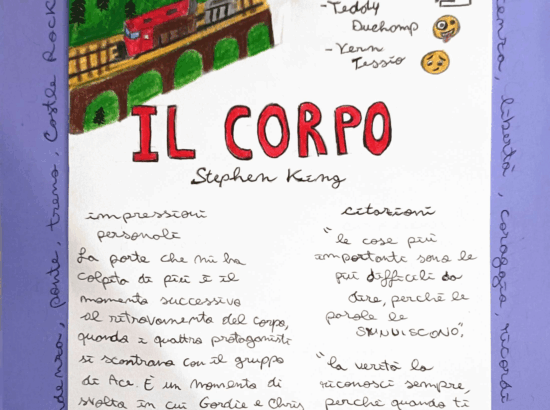 - Teddy
Duchomp
- Vern
Tessio
IL CORPO
Stephen King
impressioni
personali
La parte che mi ha
colpita di più è il
momento successivo
al ritrovamento del corpo,
quando i quattro protagonisti
si scontrano con il gruppo
di Ace. È un momento di
svolta in cui Gordie e Chris
citazioni
"le cose più
importanti sono le
più difficili da
dire, perché le
parole le
SMINUISCONO".
"la verità la
riconosci sempre,
perché quando ti
ponte, treno, Castle Rock
libertà, coraggio, ricordi